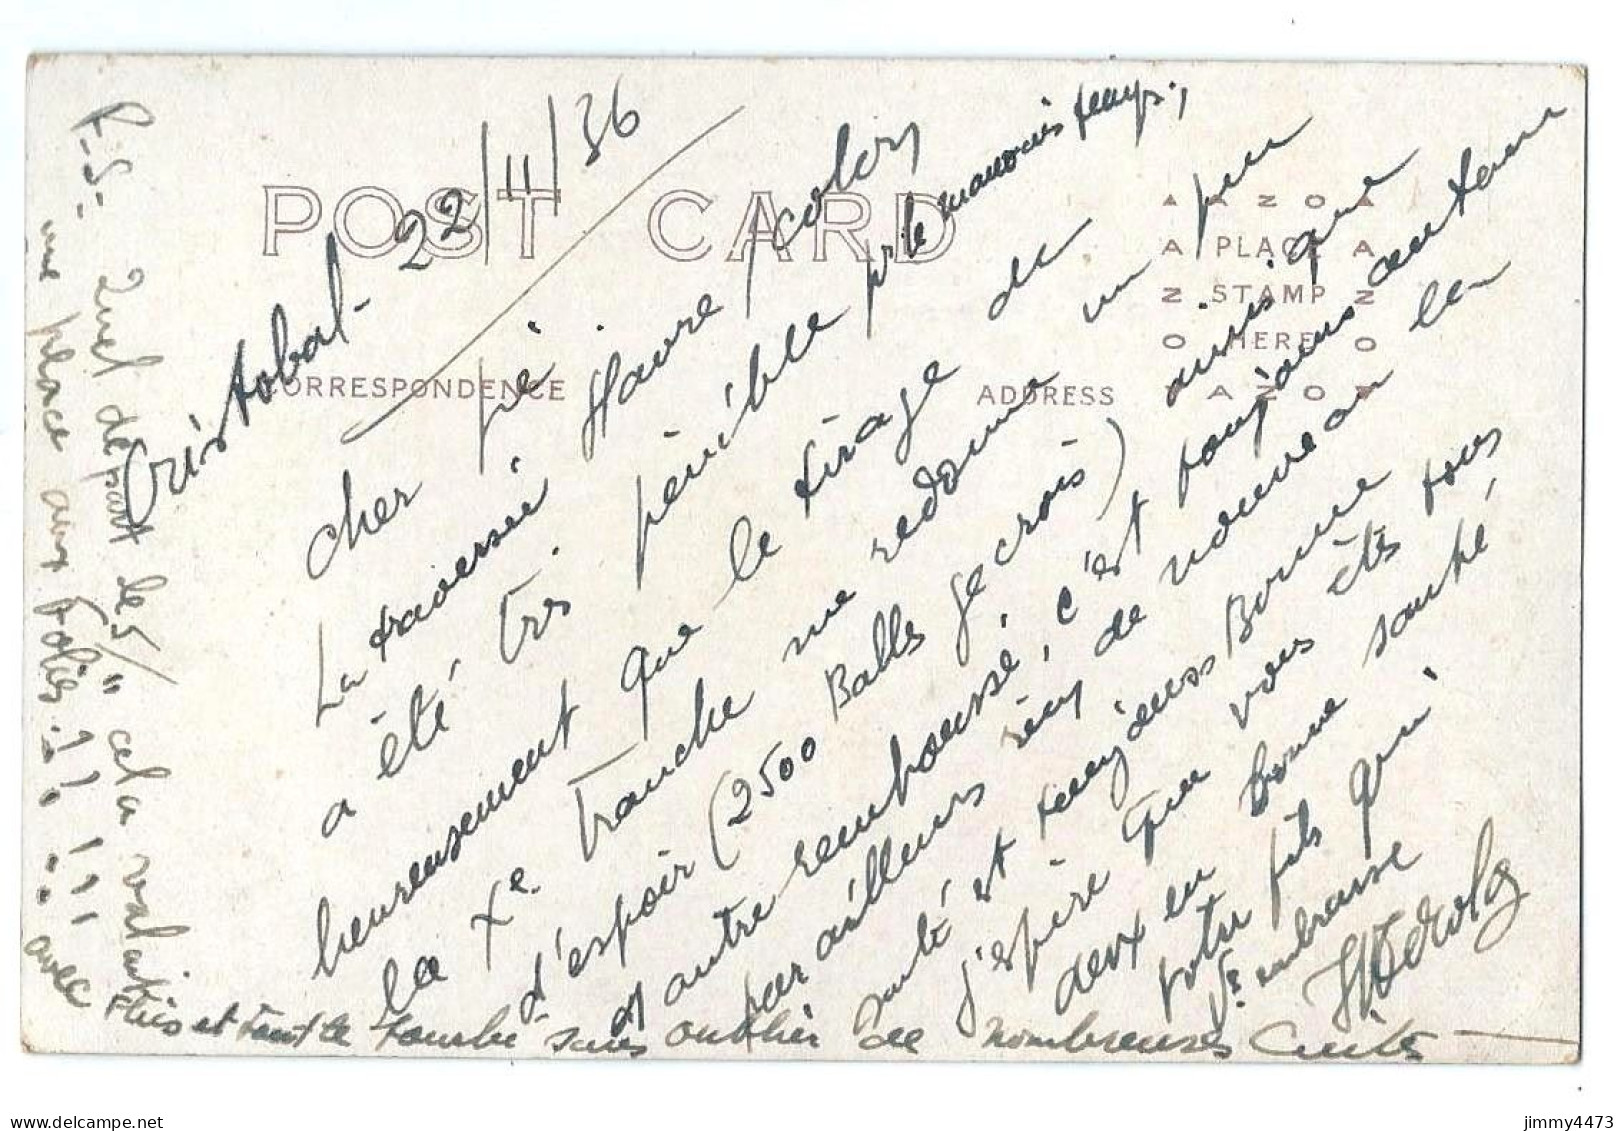 POST CARD
CORRESPONDENCE
ADDRESS
AZOA
PLACE
STAMP
HERE
AZO
Cristobal - 22/11/36
cher pé
La traversée Havre / Colon
a été très pénible pr le mauvais temps.,
heureusement que le tirage de
la Xe Tranche me redonne un peu
d'espoir (2500 Balls je crois) ainsi que
autre remboursé, c'est toujours autant
par ailleurs rien de nouveau la
santé est toujours Bonne
j'espère que vous êtes tous
deux en bonne santé,
votre fils qui
Vs embrasse
P.S.- Quel départ le 5/ " cela valait
une place aux Folies !! !!! avec
Flics et tout le sans oublier de nombreuses Cuites
jimmy4473
delcampe.net